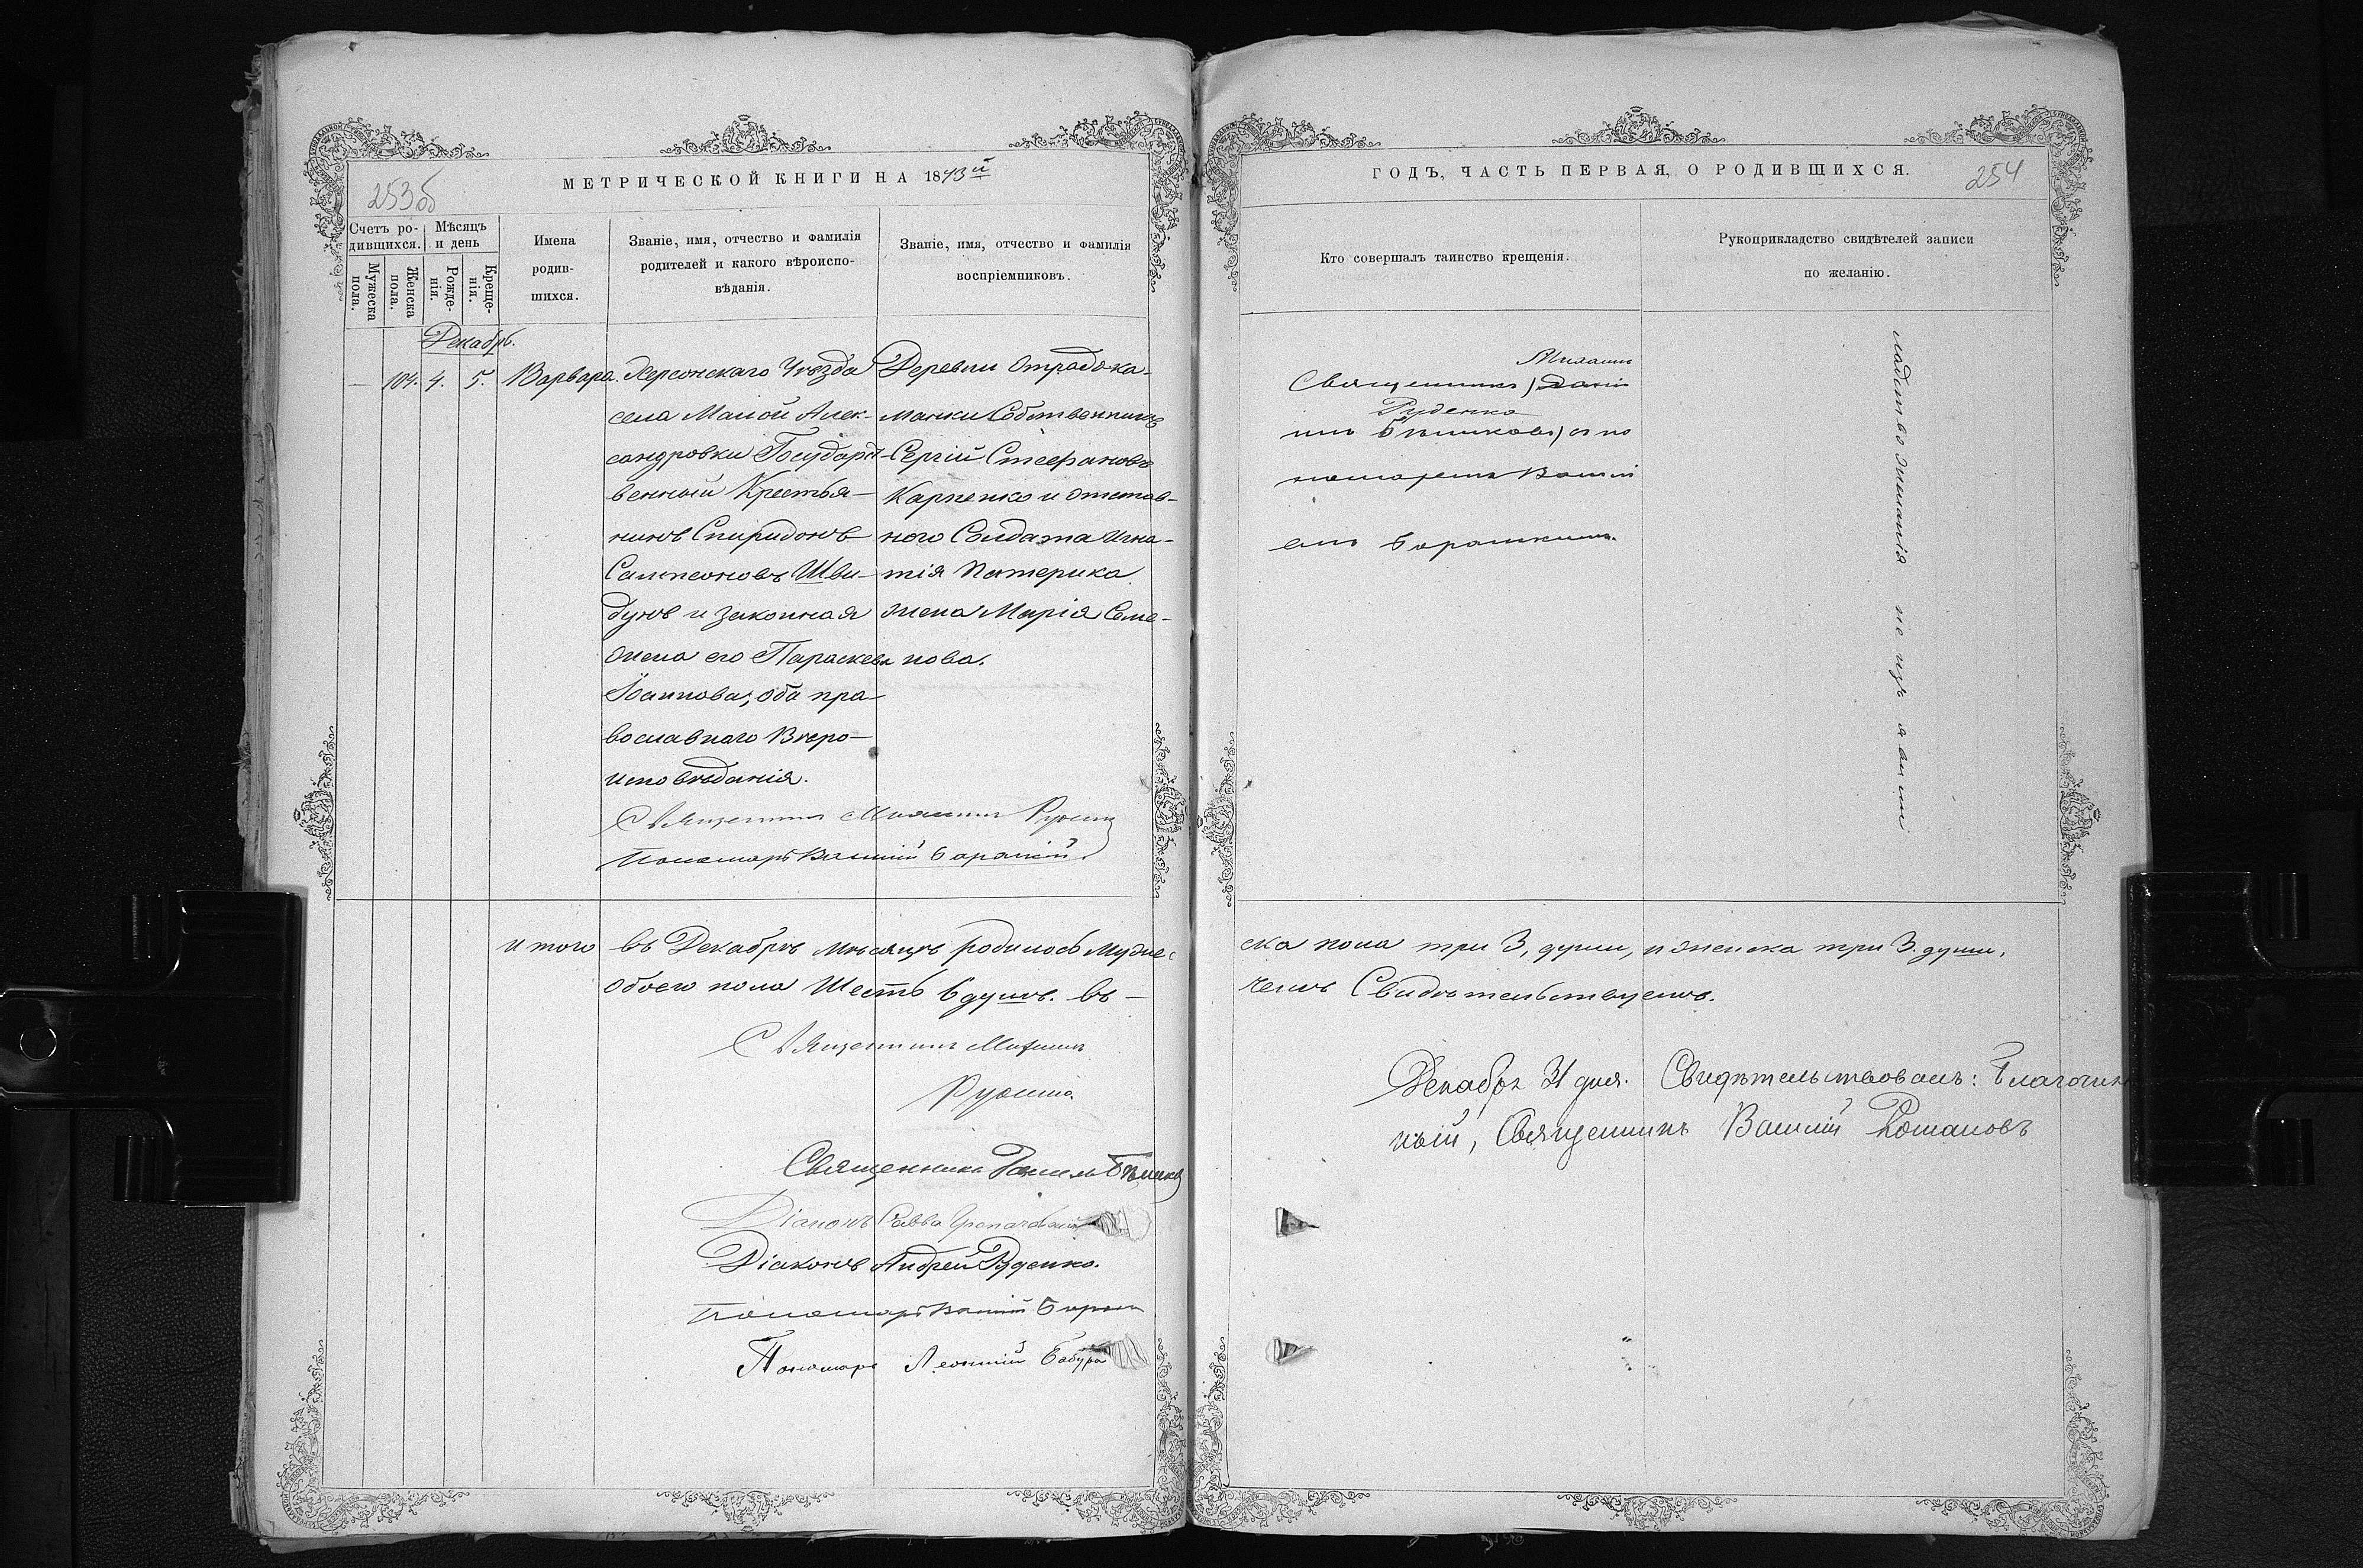 МЕТРИЧЕСКОЙ КНИГИ НА 1873й
253об
Счетъ ро-
дившихся.
Мужеска
пола.
Женска
пола.
Мѣсяцъ
и день
Рожде-
нія.
Креще-
нія.
Имена
родив-
шихся.
Званіе, имя, отчество и фамилія
родителей и какого вѣроиспо-
вѣданія.
Званіе, имя, отчество и фамилія
воспріемниковъ.
Декабрь.
— 104. 4. 5. Варвара.
Херсонскаго Уѣзда
села Малой Алек-
сандровки Государст-
венный Крестья-
нинъ Спиридонъ
Сампсоновъ
и законная
жена его Параскева
Іоаннова, оба пра-
вославнаго Вѣро-
исповѣданія.
Деревни Отрадока-
менки Собственникъ
Сергій Стефановъ
Карпенко и отстав-
ного Солдата Игна-
тія Патерика
жена Марія Семе-
нова.
Священникъ
Пономарь Василій
итого въ Декабрѣ мѣсяцѣ родилось мужес
обоего пола Шесть 6 душъ. въ —
Священникъ
Священникъ Даніилъ
Діаконъ Савва
Діаконъ Андрей Руденко.
Пономарь Василій
Пономарь Леонтій Бабура
ГОДЪ, ЧАСТЬ ПЕРВАЯ, О РОДИВШИХСЯ.
254
Кто совершалъ таинство крещенія.
Рукоприкладство свидѣтелей записи
по желанію.
Священникъ
Руденко
съ по
номаремъ Василі
емъ
ска пола три 3, души, и женска три 3. души,
чемъ Свидѣтельствуемъ.
Декабря 31 дня. Свидѣтельствовалъ: Благочин
ный, Священникъ Василій Романовъ